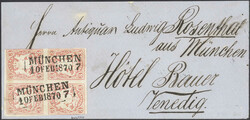 Herrn Antiquar Ludwig Rosenthal
aus München
Hôtel Bauer
Venedig
MÜNCHEN
10 FEB 1870 7
MÜNCHEN
10 FEB 1870 7